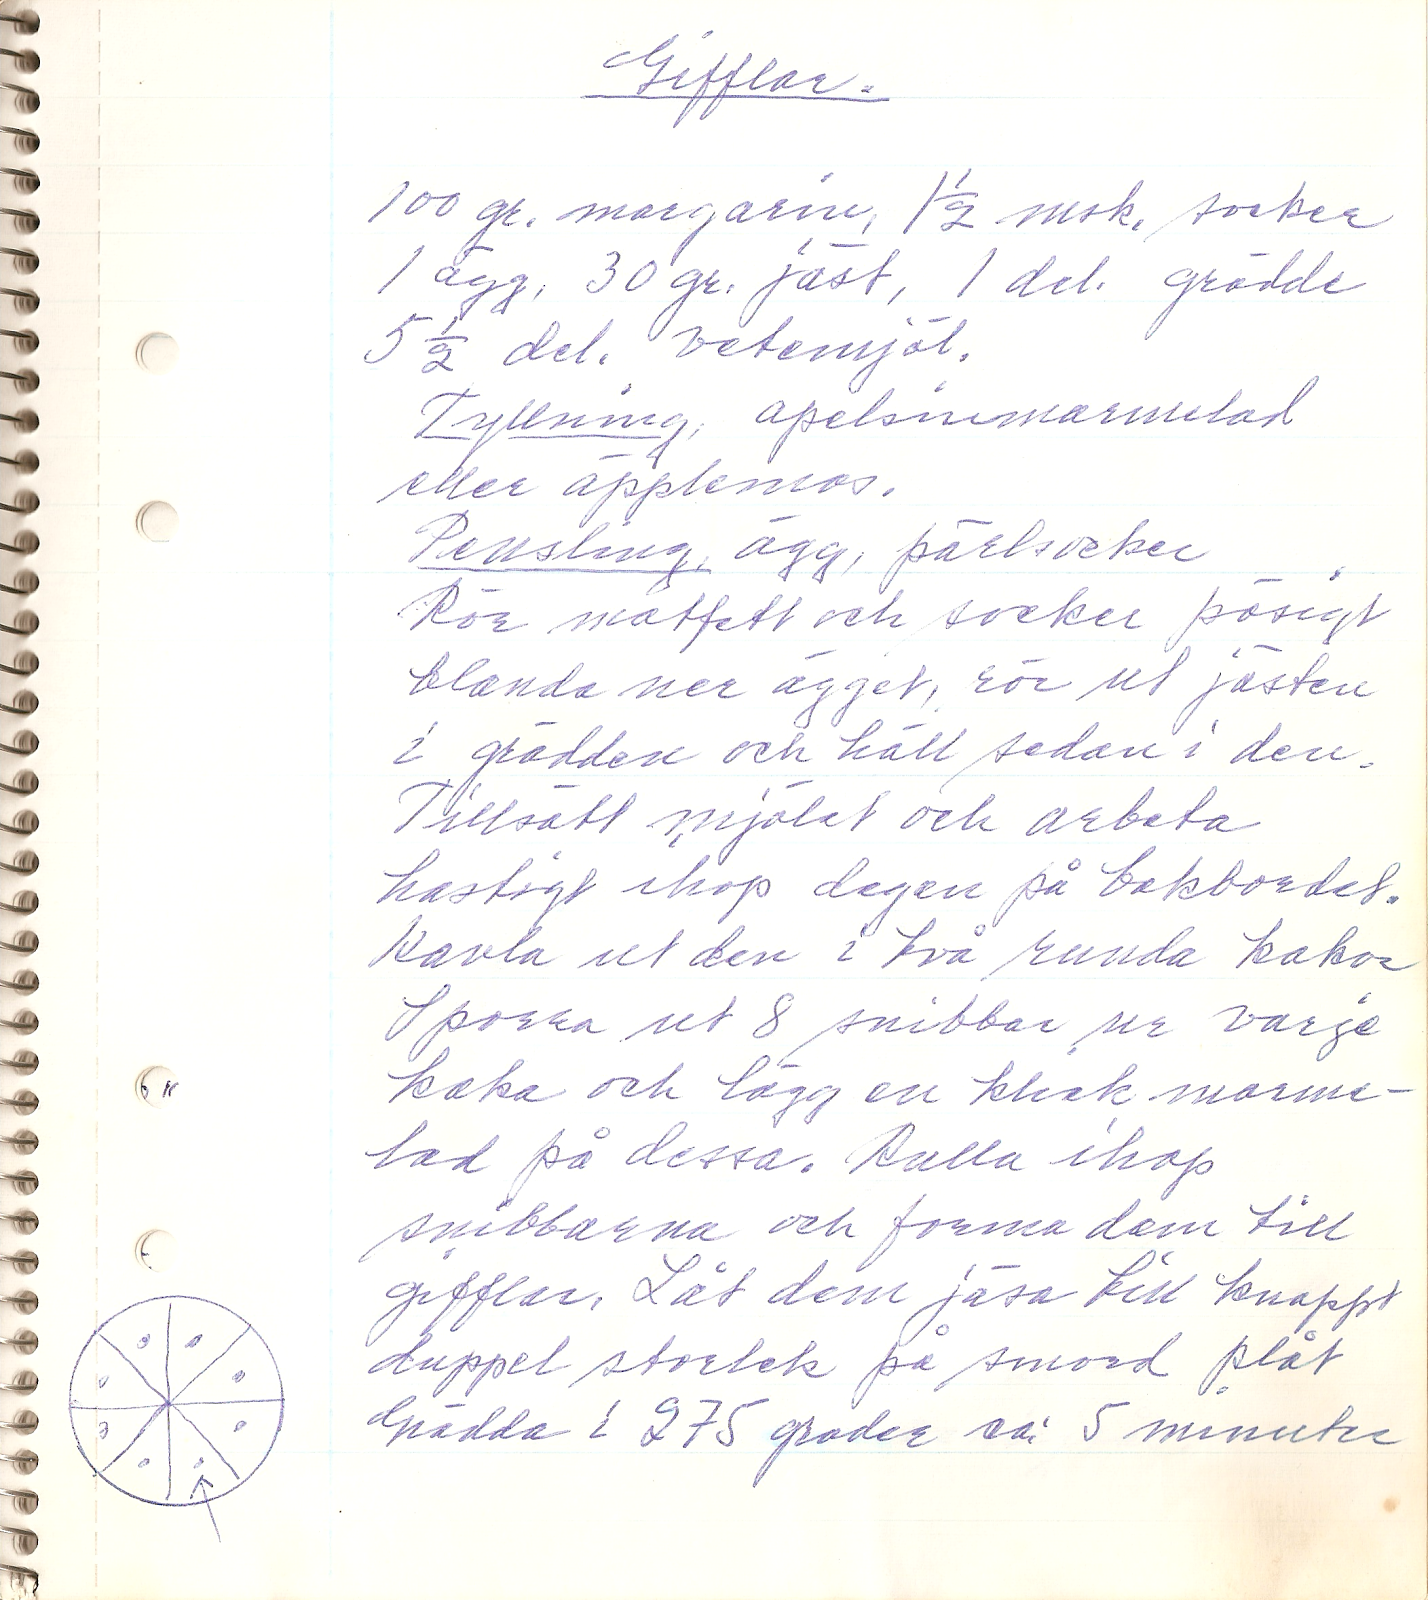 Gifflar.
100 gr. margarin, 1 1/2 msk. socker
1 ägg, 30 gr. jäst, 1 del. grädde
5 1/2 del. vetemjöl.
Fyllning, apelsinmarmelad
eller äpplemos.
Pensling, ägg, pärlsocker
Rör matfett och socker pösigt
blanda ner ägget, rör ut jästen
i grädden och häll sedan i den.
Tillsätt mjölet och arbeta
hastigt ihop degen på bakbordet.
Kavla ut den i två runda kakor
Sporra ut 8 snibbar ur varje
kaka och lägg en klick marme-
lad på dessa. Rulla ihop
snibbarna och forma dem till
gifflar. Låt dem jäsa till knappt
duppel storlek på smord plåt
Grädda i 275 grader ca: 5 minuter